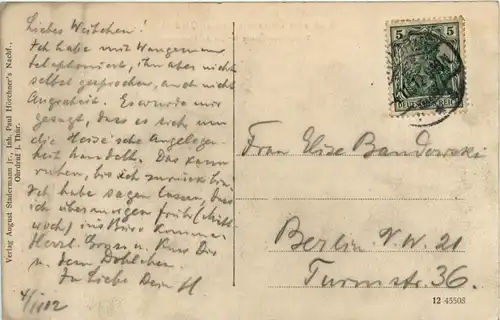 Liebes Weibchen!
Ich habe mit Wangemann
telephoniert, ihn aber nicht
selbst gesprochen, auch nicht
Es wurde mir
gesagt, dass es sich um
die Heise'sche Angelegen-
heit handelt. Das kann
ruhen, bis ich zurück bin.
Ich habe sagen lassen, dass
ich übermorgen früh (Mitt-
woch) ins Büro komme.
Herzl. Gruss u. Kuss Dir
u. dem
In Liebe Dein H
Verlag August Stadermann jr., Inh. Paul Hörchner's Nachf.,
Ohrdruf i. Thür.
5 5
DEUTSCHES REICH
Frau Elise Bandowski
Berlin N.W. 21
Turmstr. 36.
12 45508